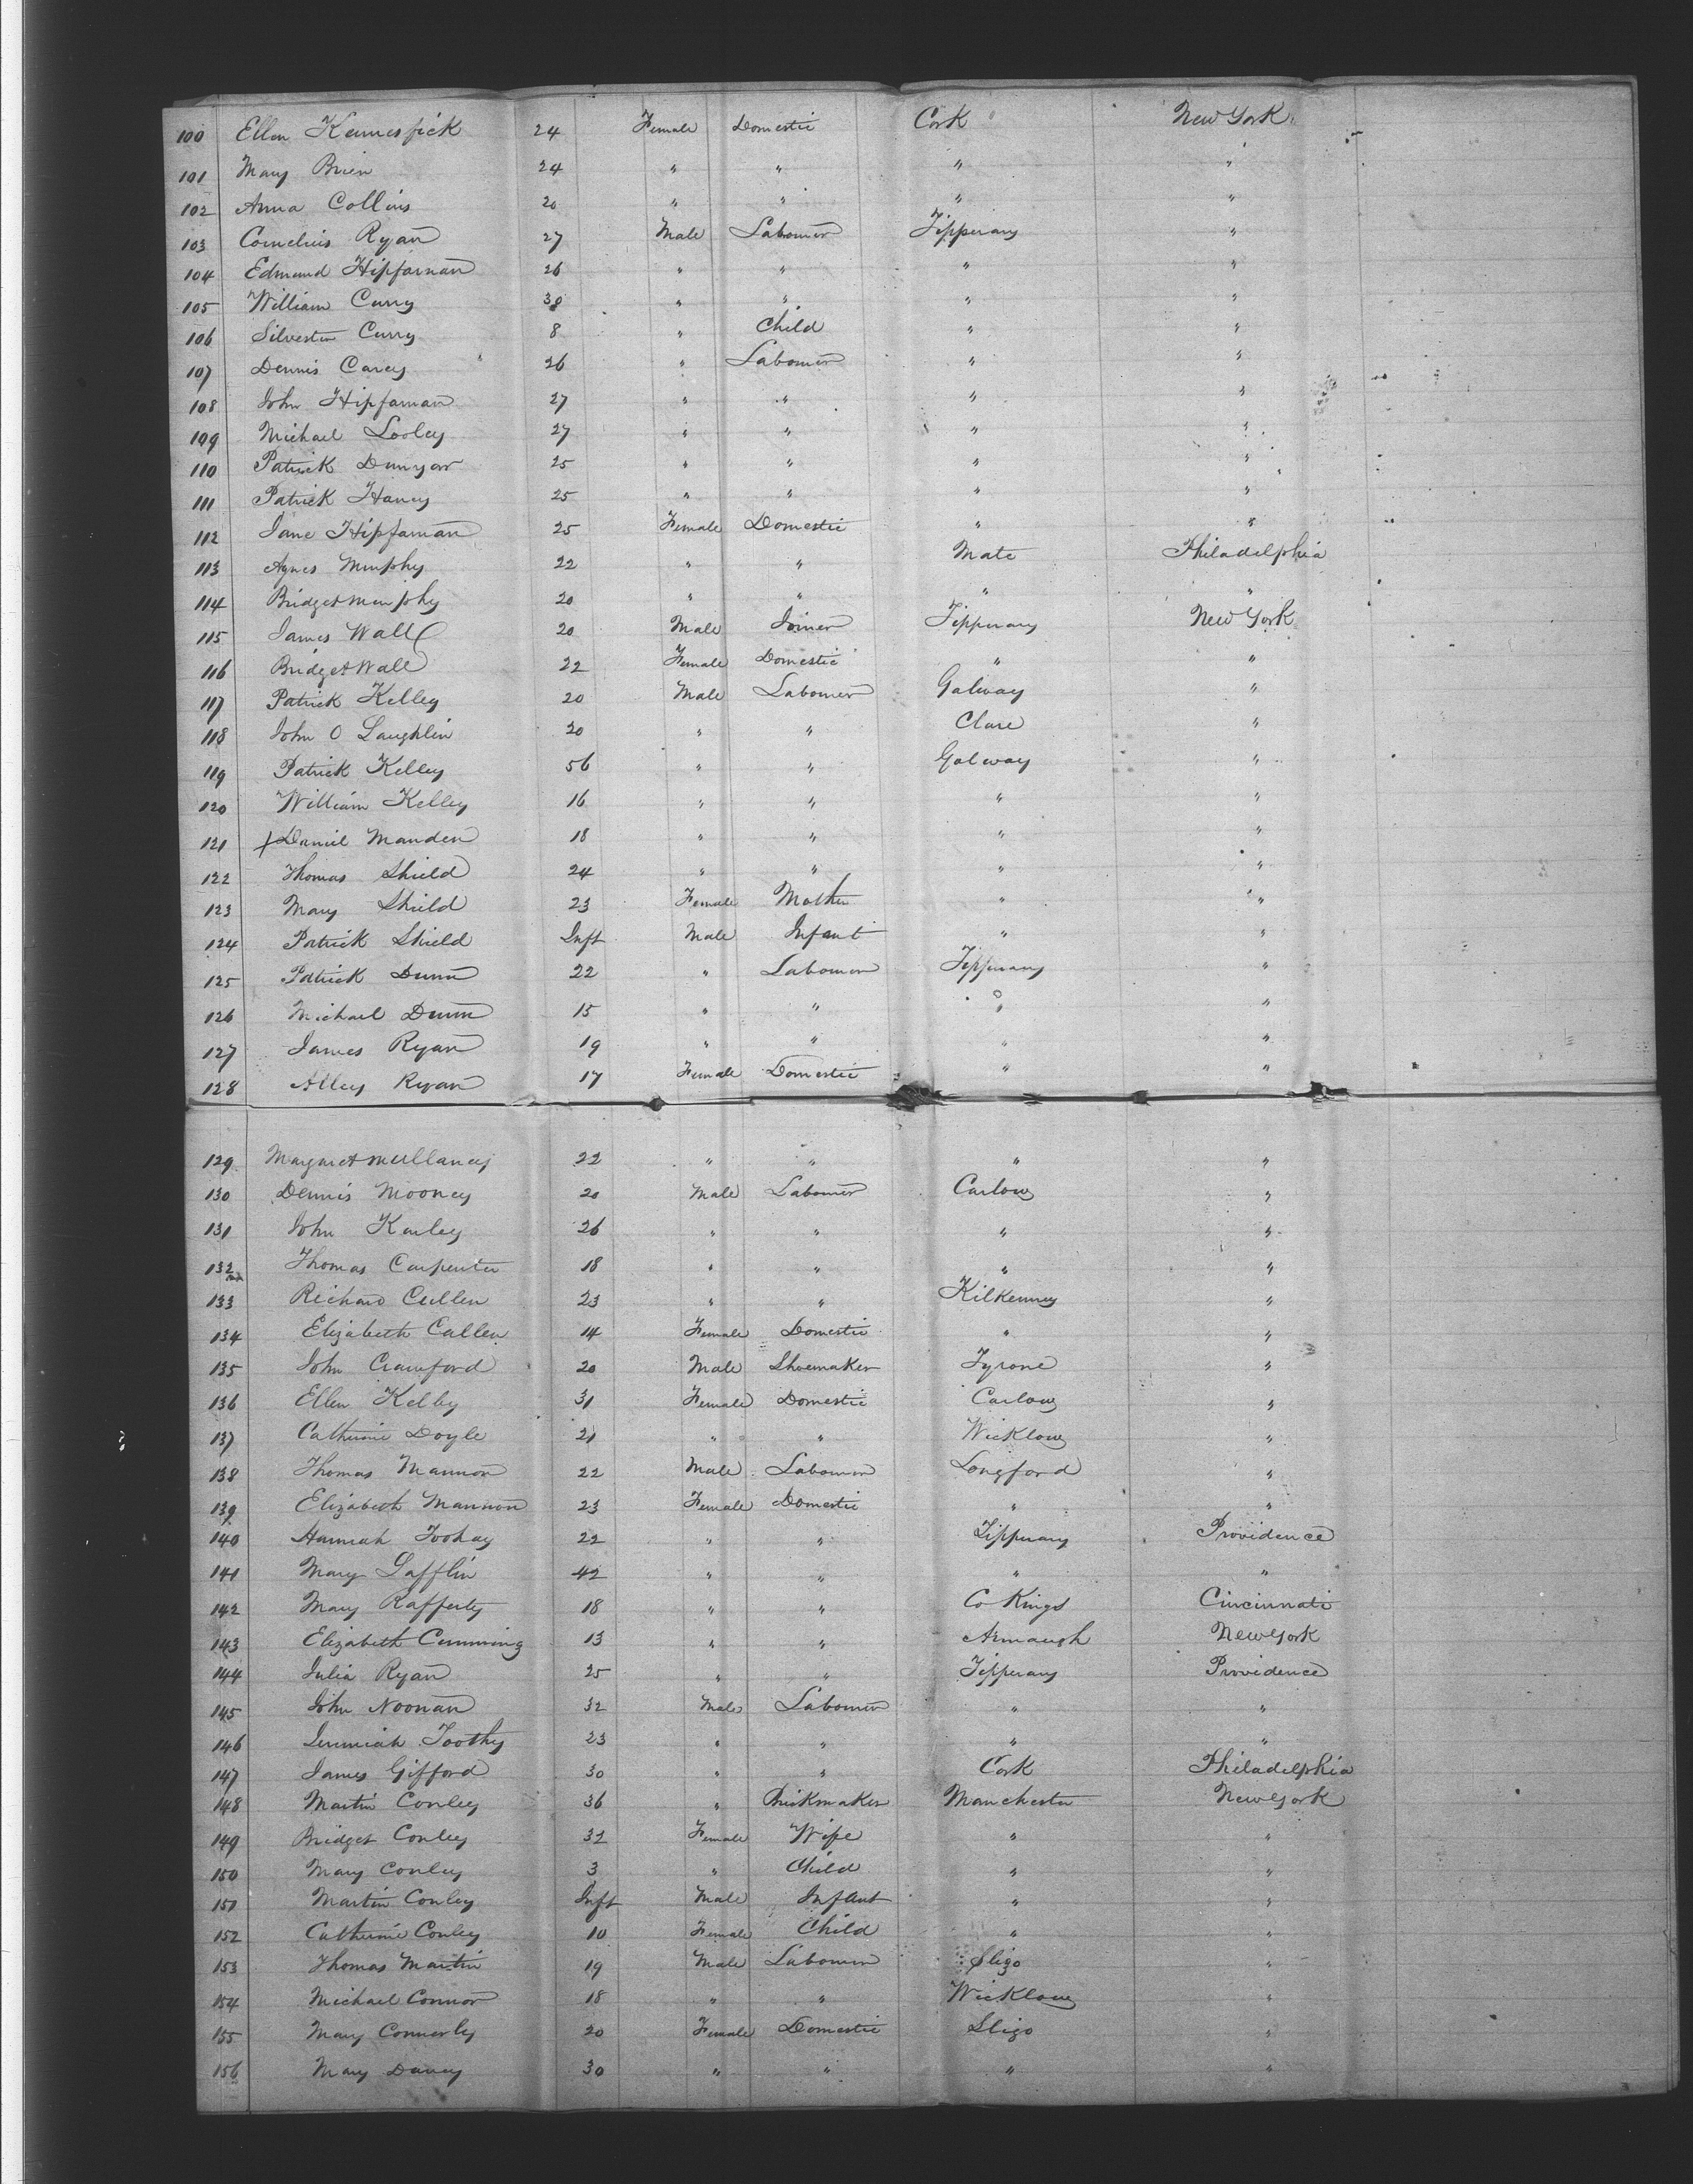 100 Ellen Kennesfick 24 Female Domestic Cork New York
101 Mary Brien 24 " " " "
102 Anna Collins 20 " " " "
103 Cornelius Ryan 27 Male Labourer Tipperary "
104 Edmund Hiffarnan 26 " " " "
105 William Curry 38 " " " "
106 Silvester Curry 8 " Child " "
107 Dennis Carey 26 " Labourer " "
108 John Hiffarnan 27 " " " "
109 Michael Looley 27 " " " "
110 Patrick 25 " " " "
111 Patrick Haney 25 " " " "
112 Jane Hiffarnan 25 Female Domestic " "
113 Agnes Murphy 22 " " Mate Philadelphia
114 Bridget Murphy 20 " " " "
115 James Wall 20 Male Joiner Tipperary New York
116 Bridget Wall 22 Female Domestic " "
117 Patrick Kelley 20 Male Labourer Galway "
118 John O Laughlin 20 " " Clare "
119 Patrick Kelley 56 " " Galway "
120 William Kelley 16 " " " "
121 Daniel Manden 18 " " " "
122 Thomas Shield 24 " " " "
123 Mary Shield 23 Female Mother " "
124 Patrick Shield Inft Male Infant " "
125 Patrick Dunn 22 " Labourer Tipperary "
126 Michael Dunn 15 " " " "
127 James Ryan 19 " " " "
128 Alley Ryan 17 Female Domestic " "
129 Margaret Mullaney 22 " " " "
130 Dennis Mooney 20 Male Labourer Carlow "
131 John Karley 26 " " " "
132 Thomas Carpenter 18 " " " "
133 Richard Cullen 23 " " Kilkenney "
134 Elizabeth Cullen 14 Female Domestic " "
135 John Crawford 20 Male Shoemaker Tyrone "
136 Ellen Kelby 31 Female Domestic Carlow "
137 Catherine Doyle 21 " " Wicklow "
138 Thomas Mannon 22 Male Labourer Longford "
139 Elizabeth Mannon 23 Female Domestic " "
140 Hannah Toohay 22 " " Tipperary Providence
141 Mary Lafflin 42 " " " "
142 Mary Rafferty 18 " " Co Kings Cincinnati
143 Elizabeth Cumming 13 " " Armaugh New York
144 Julia Ryan 25 " " Tipperary Providence
145 John Noonan 32 Male Labourer " "
146 Jerimiah Toothy 23 " " " "
147 James Gifford 30 " " Cork Philadelphia
148 Martin Conley 36 " Brickmaker Manchester New York
149 Bridget Conley 32 Female Wife " "
150 Mary Conley 3 " Child " "
151 Martin Conley Inft Male Infant " "
152 Catherine Conley 10 Female Child " "
153 Thomas Martin 19 Male Labourer Sligo "
154 Michael Connor 18 " " Wicklow "
155 Mary Connerly 20 Female Domestic Sligo "
156 Mary Davey 30 " " " "